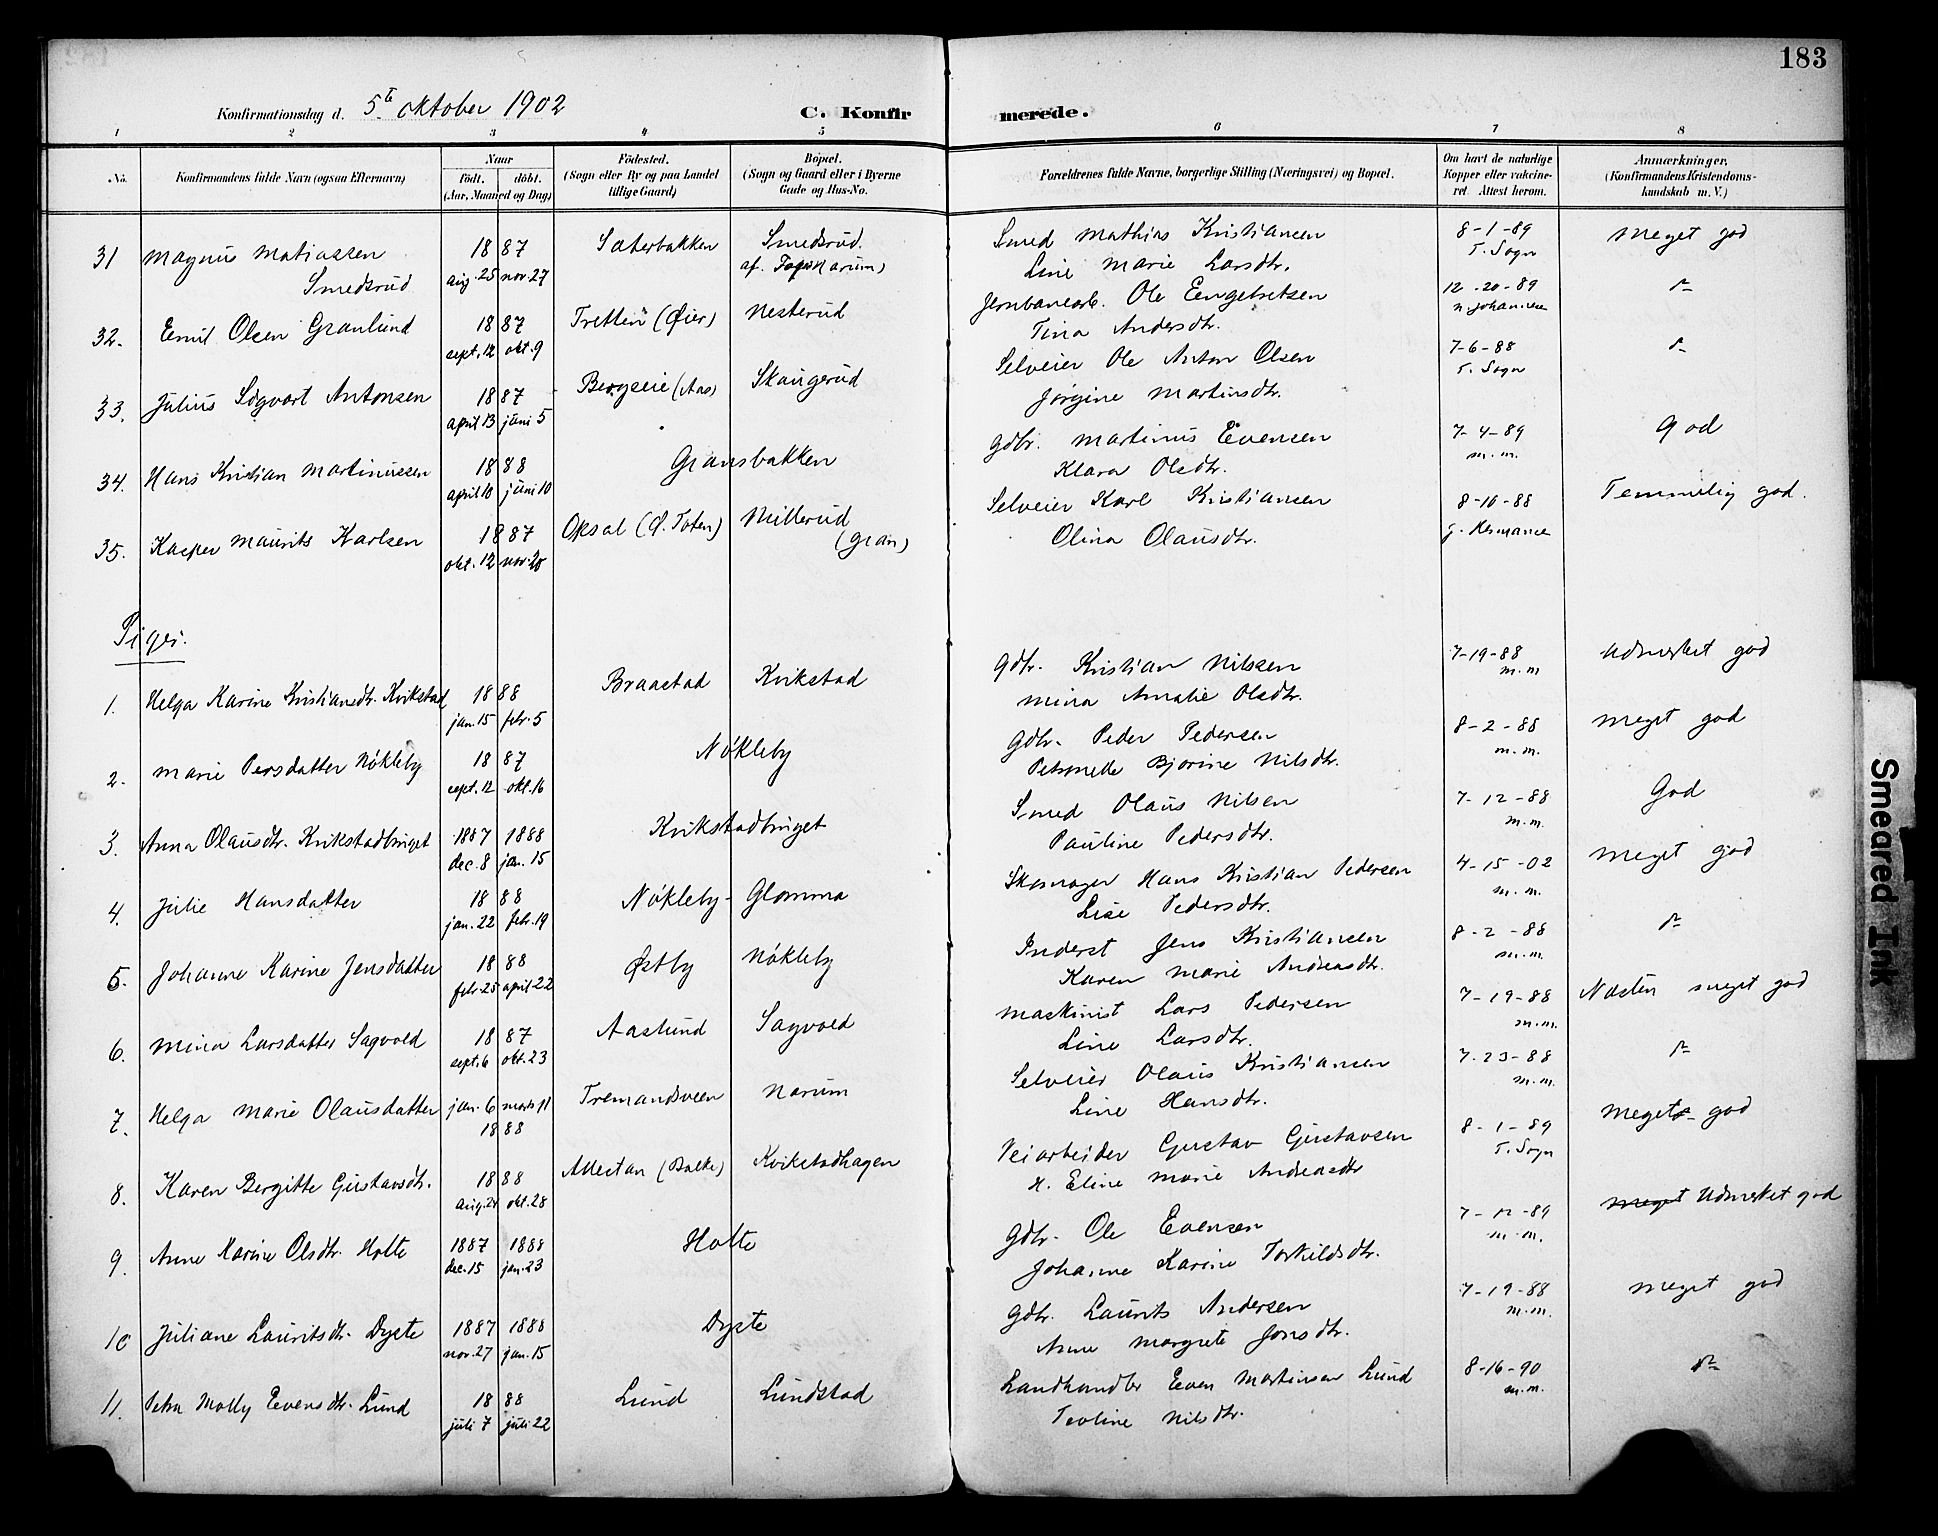 183
Konfirmationsdag d. 5te Oktober 1902 C. Konfirmerede.
1 2 3 4 5 6 7 8
No. Konfirmandens fulde Navn (ogsaa Efternavn) Naar født. døbt. (Aar, Maaned og Dag) Fødested. (Sogn eller By og paa Landet tillige Gaard) Bopæl. (Sogn og Gaard eller i Byerne Gade og Hus-No. Forældrenes fulde Navne, borgerlige Stilling (Næringsvei) og Bopæl. Om havt de naturlige Kopper eller vakcineret. Attest herom. Anmærkninger, (Konfirmandens Kristendomskundskab m. V.)
31 Magnus Matiassen Smedsrud 1887 aug. 25 nov. 27 Sæterbakken Smedsrud. Smed Mathias Kristiansen 8-1-89 Meget god
Line Marie Larsdtr. T. Sogn
32. Emil Olsen Granlund 1887 sept. 12 okt. 9 Tretten (Øier) Nesterud Jernbanearb. Ole Engebretsen 12-20-89
Tina Andersdtr.
33. Julius Sigvart Antonsen 1887 april 13 juni 5 Bergseie (Aas) Skaugerud Selveier Ole Anton Olsen 7-6-88
Jørgine Martinsdtr. T. Sogn
34. Hans Kristian Martinussen 1888 april 10 juni 10 Gransbakken Gdbr. Martinus Evensen 7-4-89 God
Klara Olsdtr. m.m.
35. Kasper Maurits Karlsen 1887 okt. 12 nov. 20 Opsal (Ø. Toten) Millerud (Gran) Selveier Karl Kristiansen 8-10-88 Temmelig god.
Olina Olausdtr.
Piger.
1. Helga Karine Kristiansdtr. Kvikstad 1888 jan. 15 febr. 5 Braastad Kvikstad Gdbr. Kristian Nilssen 7-19-88 Udmerket god
Mina Amalie Olsdtr. m.m
2. Marie Persdatter Nøkleby 1887 sept. 12 okt. 16 Nøkleby Gdbr. Peder Pedersen 8-2-88 Meget god
Petronelle Bjørine Nilsdtr. m.m.
3. Anna Olausdtr. Kvikstadbruget 1887 dec. 8 1888 jan. 15 Kvikstadbruget Smed Olaus Nilsen 7-12-88 God
Pauline Pedersdtr. m.m.
4. Julie Hansdatter 1888 jan. 22 febr. 19 Nøkleby- Glomma Skomager Hans Kristian Pedersen 4-15-02 Meget god
Lise Pedersdtr. m.m.
5. Johanne Karine Jensdatter 1888 febr. 25 april 22 Østby Nøkleby Inderst Jens Kristiansen 8-2-88
Karen Marie Andreasdtr. m.m.
6. Mina Larsdatter Sagvold 1887 sept. 6 okt. 23 Aaslund Sagvold Maskinist Lars Pedersen 7-19-88 Næsten meget god
Line Larsdtr. m.m.
7. Helga Marie Olausdatter jan. 6 marts 11 1888 Tremandsveen Narum Selveier Olaus Kristiansen 7-23-88
Line Hansdtr. m.m.
8. Karen Bergitte Gustavsdtr. 1888 aug. 24 okt. 28 (Balke) Kvikstadhagen Veiarbeider Gustav Gustavsen 8-1-89 Meget god
H. Eline Marie Andreasdtr T. Sogn
9. Anne Karine Olsdtr. Holte 1887 dec. 15 1888 jan. 23 Holte Gdbr. Ole Evensen 7-12-89 Meget Udmerket god
Johanne Karine Torkildsdtr. m.m.
10 Juliane Lauritsdtr. Dyste 1887 nov. 27 1888 jan. 15 Dyste Gdbr. Laurits Andersen 7-19-88 Meget god
Anne Margrete Jonsdtr. m.m.
11. Petra Molly Evensdtr. Lund 1888 juli 7 juli 22 Lund Lundstad Landhandler Even Martinsen Lund 8-16-90
Teoline Nilsdtr. m.m.
Smeared Ink